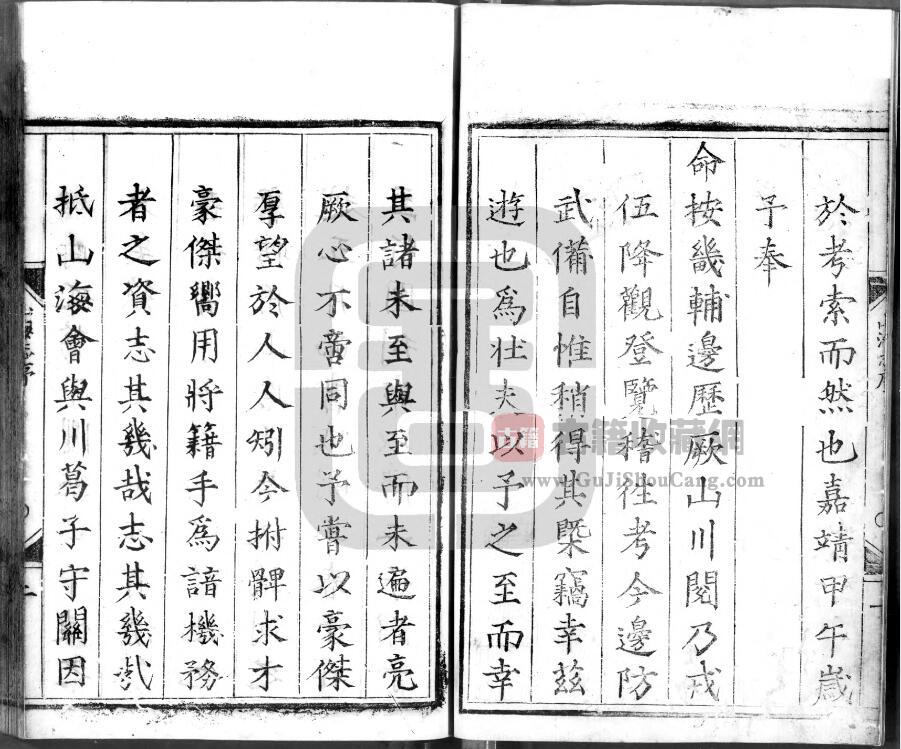 於考索而然也嘉靖甲午歲
予奉
命按畿輔邊歷厥山川閱乃戎
伍降觀登覽稽徃考今邊防
武備自惟稍得其槩竊幸茲
遊也爲壯夫以予之至而幸
其諸未至與至而未遍者亮
厥心不啻同也予嘗以豪傑
厚望於人人矧今拊髀求才
豪傑嚮用將籍手爲諳機務
者之資志其幾哉志其幾哉
抵山海會與川葛子守關因
山海志序
古籍
古籍收藏網
www.GuJiShouCang.com